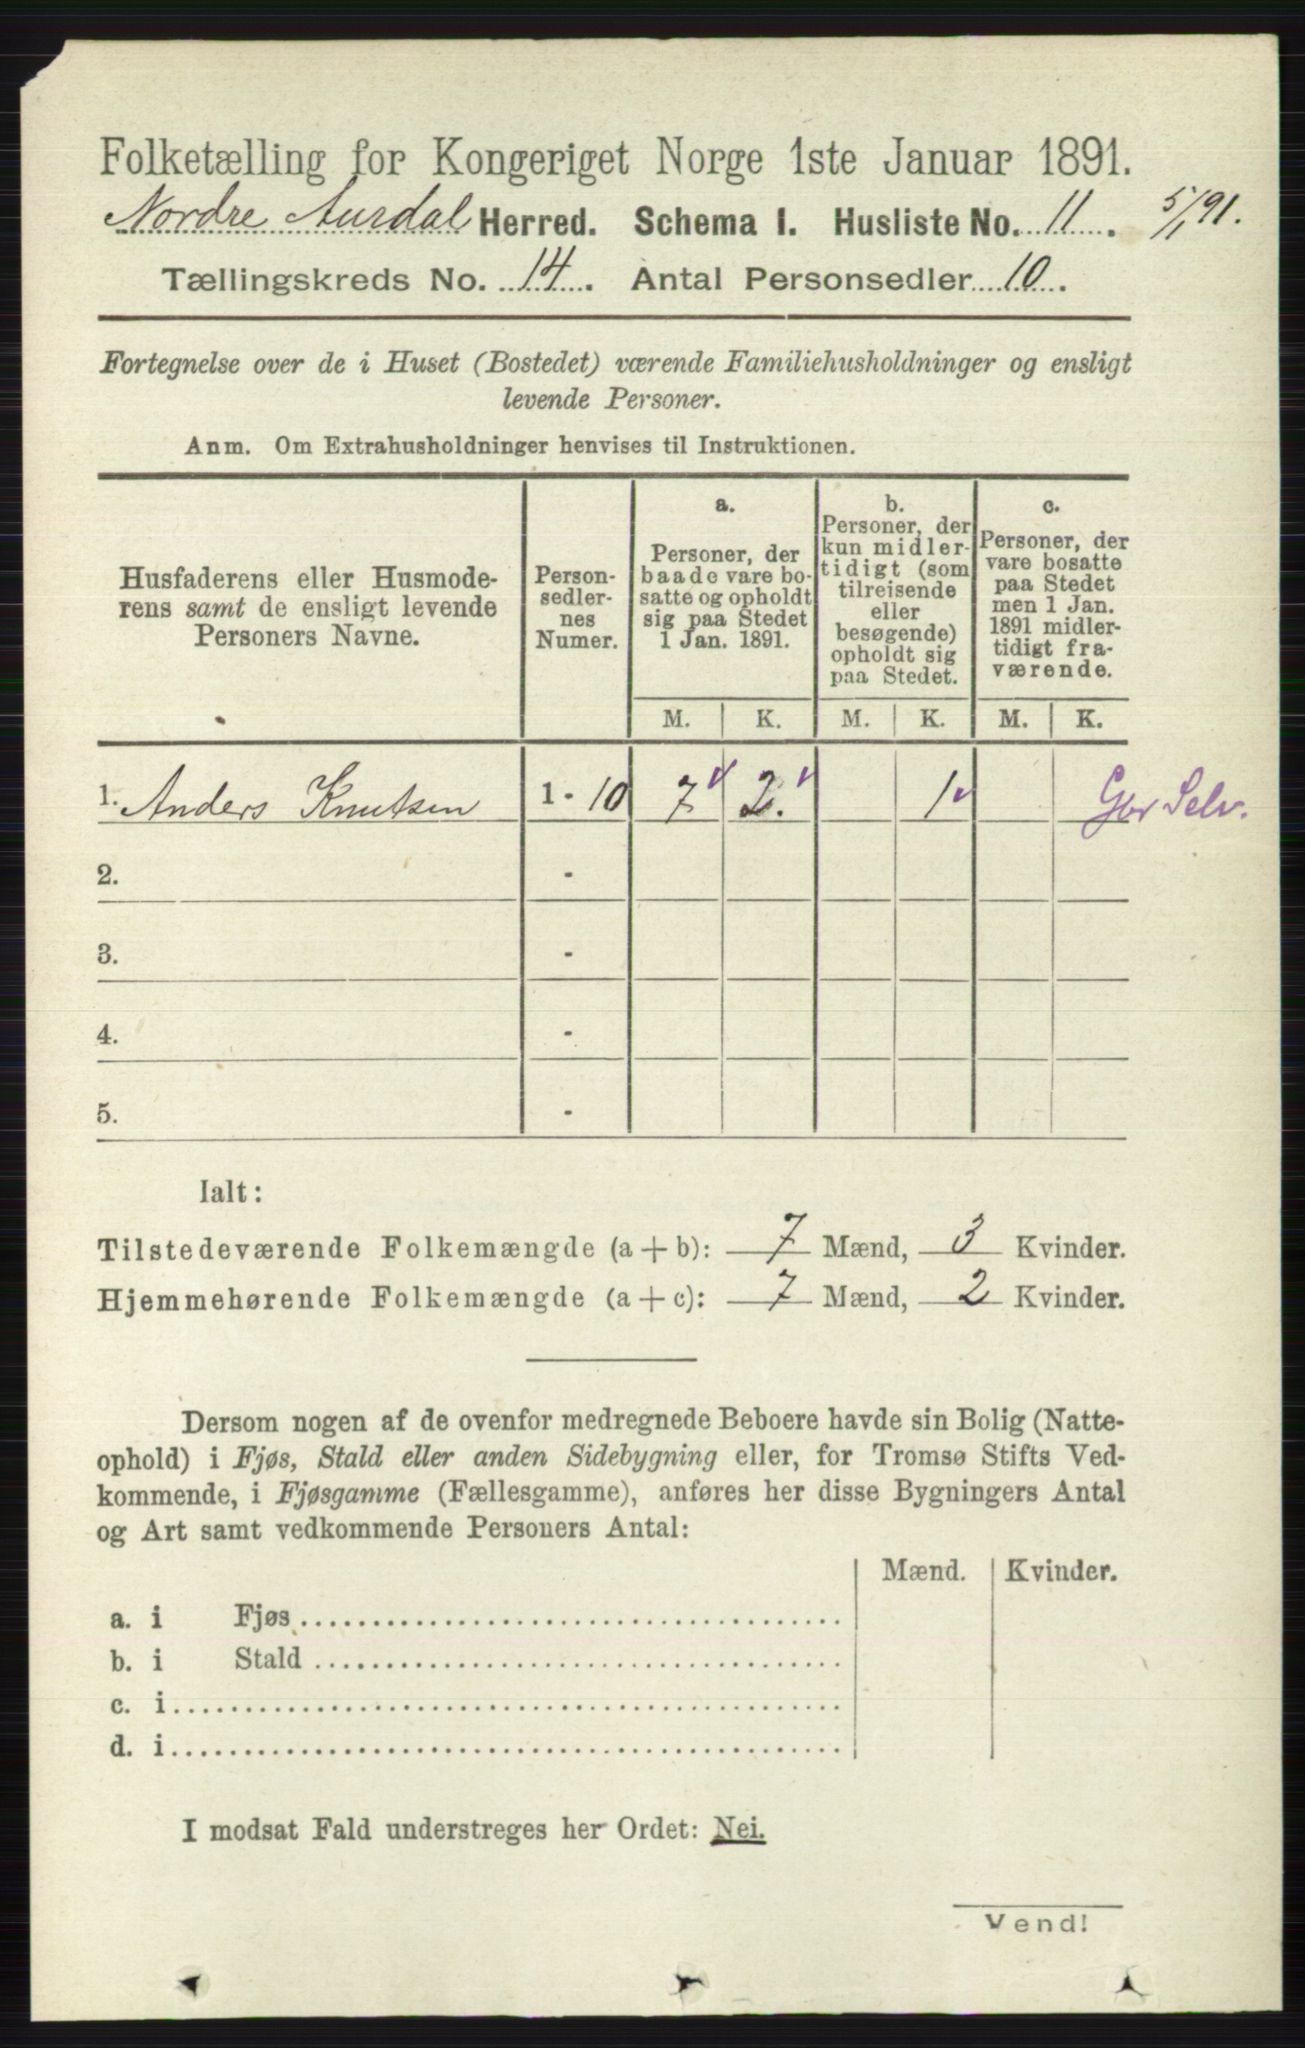 Folketælling for Kongeriget Norge 1ste Januar 1891.
Nordre Aurdal Herred. Schema I. Husliste No. 11. 5/1 91.
Tællingskreds No. 14. Antal Personsedler 10.
Fortegnelse over de i Huset (Bostedet) værende Familiehusholdninger og ensligt
levende Personer.
Anm. Om Extrahusholdninger henvises til Instruktionen.
Husfaderens eller Husmode-
rens samt de ensligt levende
Personers Navne.
Person-
sedler-
nes
Numer.
a.
Personer, der
baade vare bo-
satte og opholdt
sig paa Stedet
1 Jan. 1891.
b.
Personer, der
kun midler-
tidigt (som
tilreisende
eller
besøgende)
opholdt sig
paa Stedet.
c.
Personer, der
vare bosatte
paa Stedet
men 1 Jan.
1891 midler-
tidigt fra-
værende.
M. K. M. K. M. K.
1. Anders Knutsen 1 - 10 7 2. 1 Gbr Selv.
2. -
3. -
4. -
5. -
Ialt:
Tilstedeværende Folkemængde (a + b): 7 Mænd, 3 Kvinder.
Hjemmehørende Folkemængde (a + c): 7 Mænd, 2 Kvinder.
Dersom nogen af de ovenfor medregnede Beboere havde sin Bolig (Natte-
ophold) i Fjøs, Stald eller anden Sidebygning eller, for Tromsø Stifts Ved-
kommende, i Fjøsgamme (Fællesgamme), anføres her disse Bygningers Antal
og Art samt vedkommende Personers Antal:
Mænd. Kvinder.
a. i Fjøs
b. i Stald
c. i
d. i
I modsat Fald understreges her Ordet: Nei.
Vend!